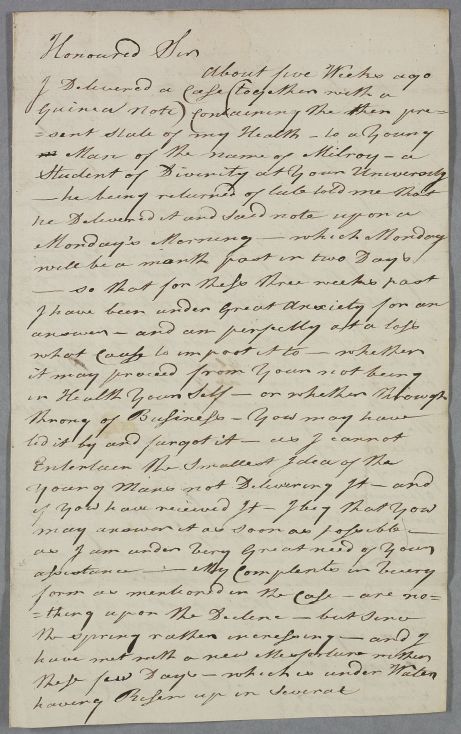 Honoured Sir
about five Weeks ago
I Delivered a Case (together with a
Guinea Note) containing the then pre=
=sent state of my Health – to a Young
Man of the name of Milroy – a
Student of Divinity at Your University
– he being returned of late told me that
he Delivered it and said note upon a
Monday's Morning – which Monday
will be a month past in two Days
– so that for these three weeks past
I have been under Great Anxiety for an
answer – and am perfectly at a loss
what Cause to impoot it to – whether
it may proceed from Your not being
in Health Your Self – or whether through
throng of Business – You may have
led it by and furgot it – as I cannot
Entertain the Smallest Idea of the
Young Mans not Delivering It – and
if You have received It – I beg that You
may answer it as soon as possible –
as I am under very Great need of Your
assistance – My Complents in every
form as mentioned in the Case – are no=
=thing upon the Decline – but since
the spring rather incressing – and I
have met with a new Mesfortune within
these few Days – which is under Water
having Risen up in several